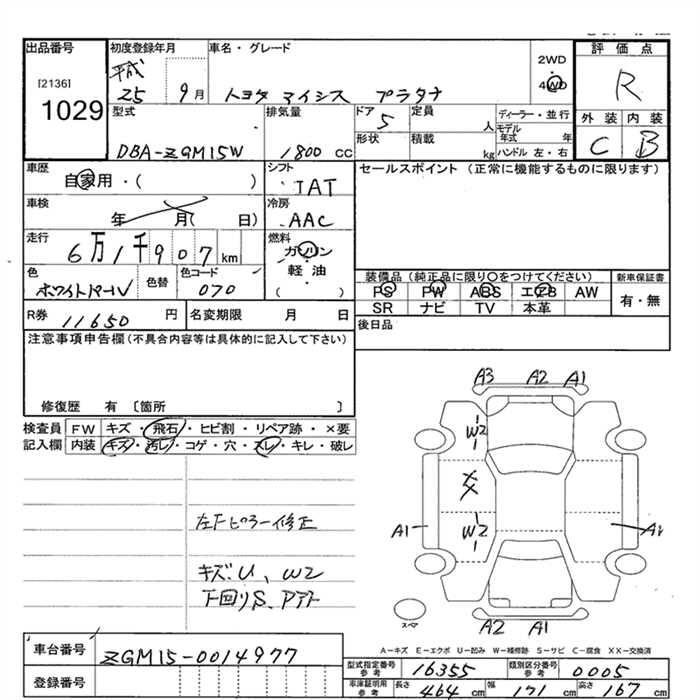 出品番号
[2136]
1029
初度登録年月
平成
25 9月
車名・グレード
トヨタ マイシス プラタナ
2WD
4WD
評価点
R
外装 内装
C B
型式
DBA-ZGM15W
排気量
1800 cc
ドア
5
定員
人
形状
積載
kg
ディーラー・並行
モデル年式 年
ハンドル 左・右
車歴
自家用・( )
シフト
IAT
セールスポイント (正常に機能するものに限ります)
車検
年 月( 日)
冷房
AAC
走行
6万1千907km
燃料
ガソリン
軽油
( )
色
ホワイトパール
色替
色コード
070
装備品 (純正品に限り〇をつけてください)
PS PW ABS エアB AW
SR ナビ TV 本革
新車保証書
有・無
R券 11650 円
名変期限 月 日
後日品
注意事項申告欄 (不具合内容等は具体的に記入して下さい)
修復歴 有 〔箇所 〕
検査員
記入欄
FW キズ・飛石・ヒビ割・リペア跡・×要
内装 キズ・汚レ・コゲ・穴・スレ・キレ・破レ
左Fピラー修正
キズ.U、W2
下回りS、Pアト
A3 A2 A1
W2
XX
W2
A1
A1
A2 A1
スペア
A-キズ E-エクボ U-凹み W-補修跡 S-サビ C-腐食 XX-交換済
車台番号
ZGM15-0014977
登録番号
型式指定番号
参考
16355
類別区分番号
参考
0005
車庫証明用
参考
長さ 464 cm 幅 171 cm 高さ 167 cm